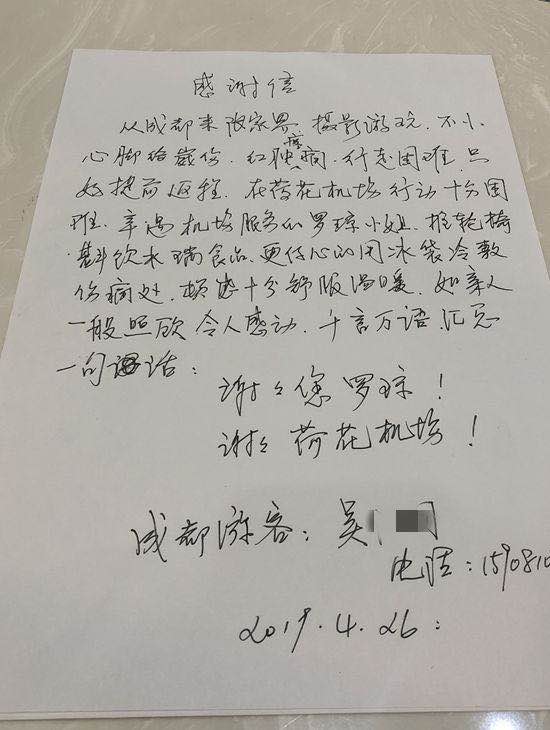 感谢信
从成都来张家界摄影游玩.不小
心脚给崴伤.红肿疼痛.行走困难.只
好提前返程.在荷花机场行动十分困
难.幸遇机场服务的罗琼小姐.推轮椅
斟饮水端食品.更仔心的用冰袋冷敷
伤痛处.顿感十分舒服温暖.如亲人
一般照顾令人感动.千言万语.汇
一句话:
谢々您罗琼!
谢々荷花机场!
成都游客:吴
电话:1590810
2019.4.26: